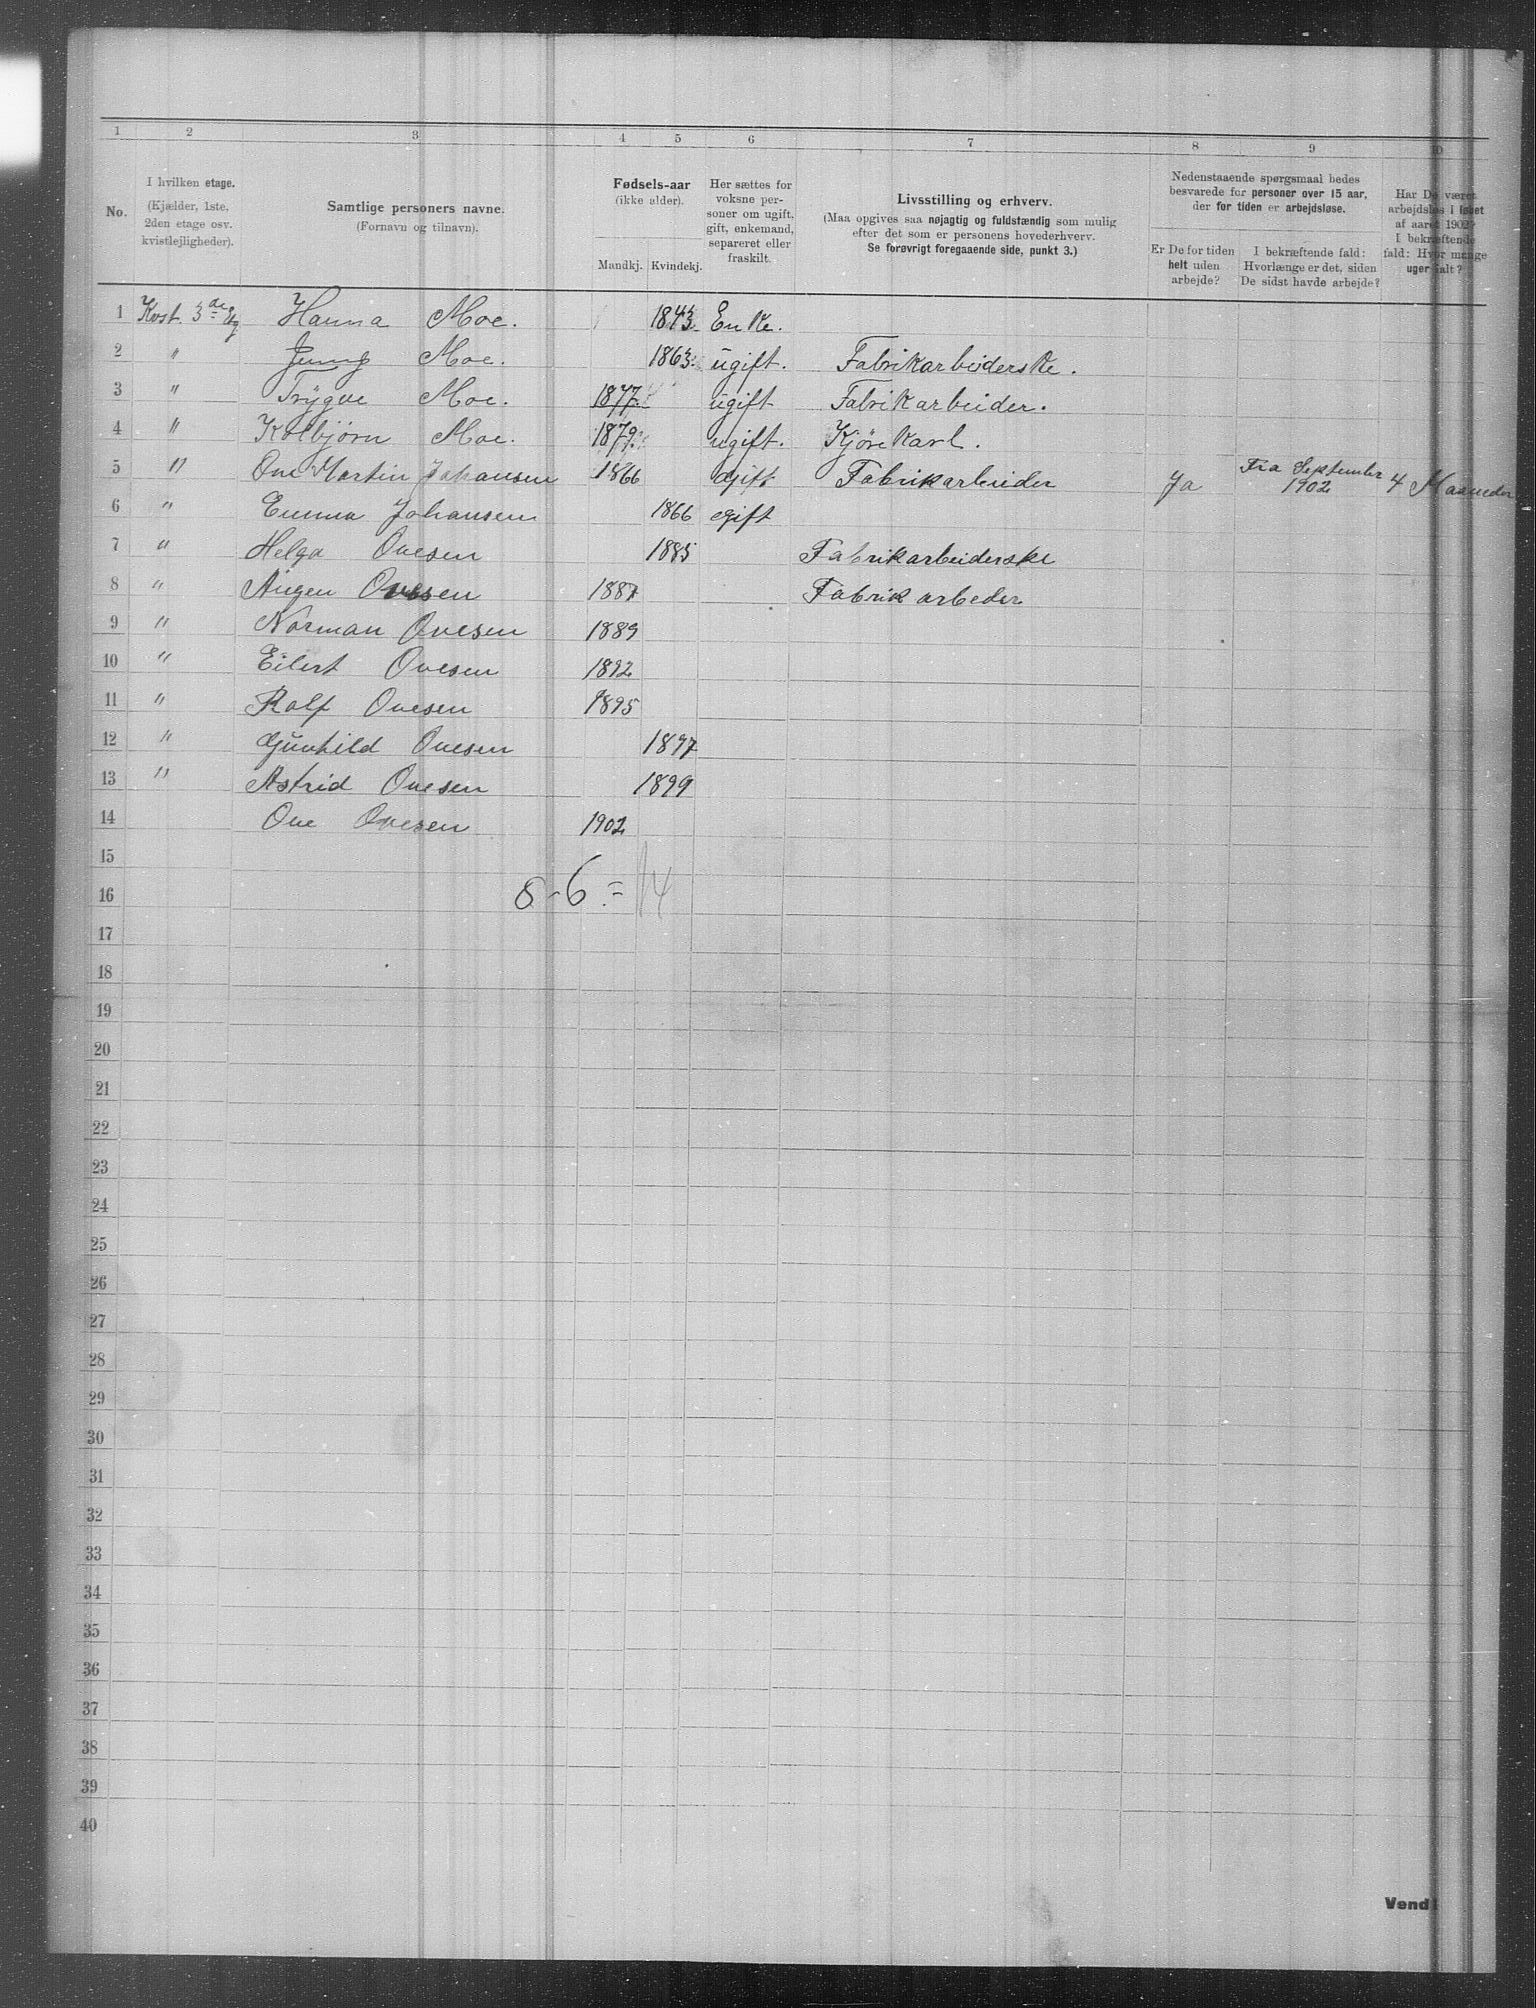 1 2 3 4 5 6 7 8 9 10
No.
I hvilken etage.
(Kjælder, 1ste,
2den etage osv.
kvistlejligheder).
Samtlige personers navne.
(Fornavn og tilnavn).
Fødsels-aar
(ikke alder).
Mandkj. Kvindekj.
Her sættes for
voksne per-
soner om ugift,
gift, enkemand,
separeret eller
fraskilt.
Livsstilling og erhverv.
(Maa opgives saa nøjagtig og fuldstændig som mulig
efter det som er personens hovederhverv.
Se forøvrigt foregaaende side, punkt 3.)
Nedenstaaende spørgsmaal bedes
besvarede for personer over 15 aar,
der for tiden er arbejdsløse.
Er De for tiden
helt uden
arbejde?
I bekræftende fald:
Hvorlænge er det, siden
De sidst havde arbejde?
Har De været
arbejdsløs i løbet
af aaret 1902?
I bekræftende
fald: Hvor mange
uger ialt?
1 Kvst. 3de Etg Hanna Moe. 1843 Enke.
2 " Jenny Moe. 1863 ugift. Fabrikarbeiderske.
3 " Trygve Moe. 1877. ugift Fabrikarbeider.
4 " Kolbjørn Moe. 1879. ugift. Kjørekarl.
5 " Ove Martin Johansen 1866 gift Fabrikarbeider Ja Fra September 1902 4 Maaneder
6 " Emma Johansen 1866 gift
7 " Helga Ovesen 1885 Fabrikarbeiderske
8 " Ovesen 1887 Fabrik arbeder
9 " Norman Ovesen 1889
10 " Eilert Ovesen 1892
11 " Ralf Ovesen 1895
12 " Gunhild Ovesen 1897
13 " Astrid Ovesen 1899
14 Ove Ovesen 1902
15
8-6=14
16
17
18
19
20
21
22
23
24
25
26
27
28
29
30
31
32
33
34
35
36
37
38
39
40
Vend!